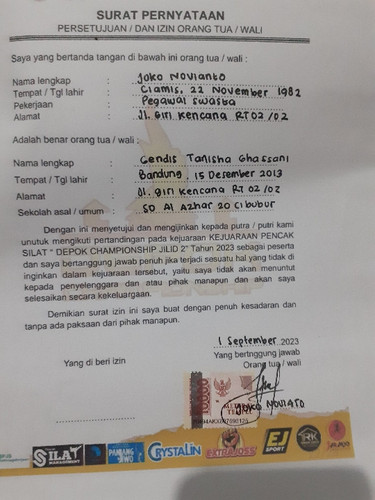 SURAT PERNYATAAN
PERSETUJUAN / DAN IZIN ORANG TUA / WALI
Saya yang bertanda tangan di bawah ini orang tua / wali :
Nama lengkap : Joko Novianto
Tempat / Tgl lahir : Ciamis, 22 November 1982
Pekerjaan : Pegawai swasta
Alamat : Jl. Giri Kencana RT 02 / 02
Adalah benar orang tua / wali :
Nama lengkap : Gendis Tanisha Ghassani
Tempat / Tgl lahir : Bandung, 15 Desember 2013
Alamat : Jl. Giri Kencana RT 02 / 02
Sekolah asal / umum : SD Al Azhar 20 Cibubur
Dengan ini menyetujui dan mengijinkan kepada putra / putri kami
unutuk mengikuti pertandingan pada kejuaraan KEJUARAAN PENCAK
SILAT " DEPOK CHAMPIONSHIP JILID 2" Tahun 2023 sebagai peserta
dan saya bertanggung jawab penuh jika terjadi sesuatu hal yang tidak di
inginkan dalam kejuaraan tersebut, yaitu saya tidak akan menuntut
kepada penyelenggara dan atau pihak manapun dan akan saya
selesaikan secara kekeluargaan.
Demikian surat izin ini saya buat dengan penuh kesadaran dan
tanpa ada paksaan dari pihak manapun.
1 September 2023
Yang di beri izin
Yang bertinggung jawab
Orang tua / wali
10000
JOKO NOVIATO
SILAT
MANAGEMENT
PANJANG
JIWO
CRYSTALIN
EXTRA JOSS
EJ
SPORT
RK